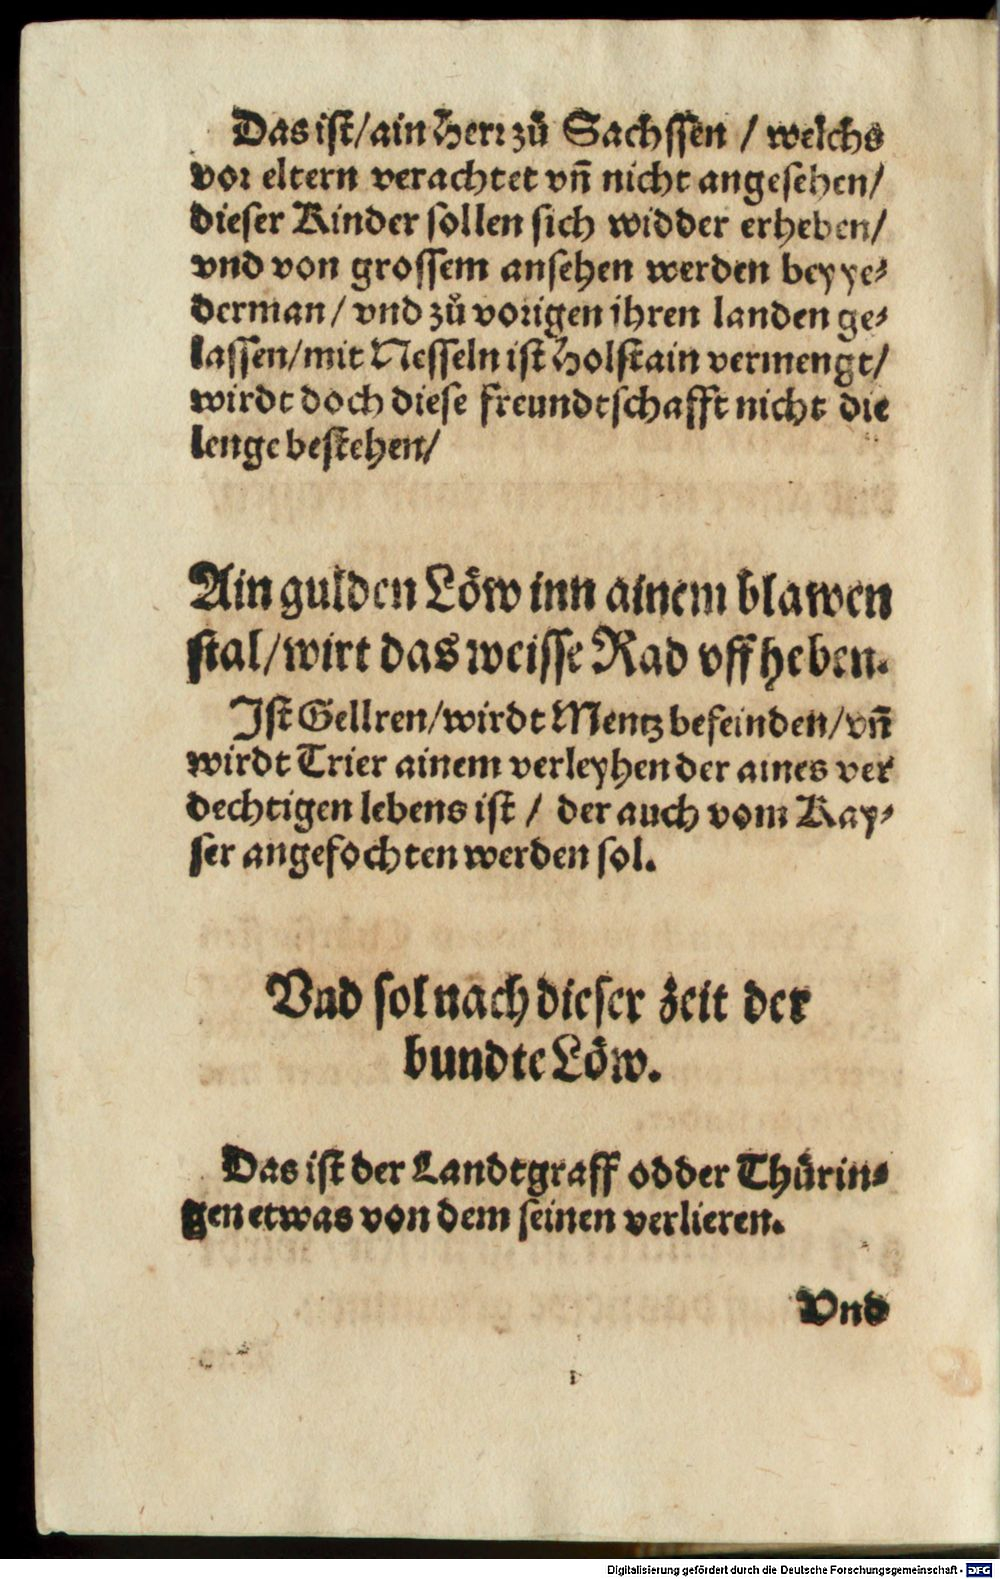 Das ist/ain Herr zů Sachssen / welchs
vor eltern verachtet vñ nicht angesehen/
dieser Kinder sollen sich widder erheben/
vnd von grossem ansehen werden bey ye-
derman/ vnd zů vorigen ihren landen ge-
lassen/mit Nesseln ist Holstain vermengt/
wirdt doch diese freundtschafft nicht die
lenge bestehen/
Ain gulden Löw inn ainem blawen
stal/wirt das weisse Rad vff heben.
Ist Gellren/wirdt Mentz befeinden/vñ
wirdt Trier ainem verleyhen der aines ver
dechtigen lebens ist / der auch vom Kay-
ser angefochten werden sol.
Vnd sol nach dieser zeit der
bundte Löw.
Das ist der Landtgraff odder Thürin-
gen etwas von dem seinen verlieren.
Vnd
Digitalisierung gefördert durch die Deutsche Forschungsgemeinschaft - DFG